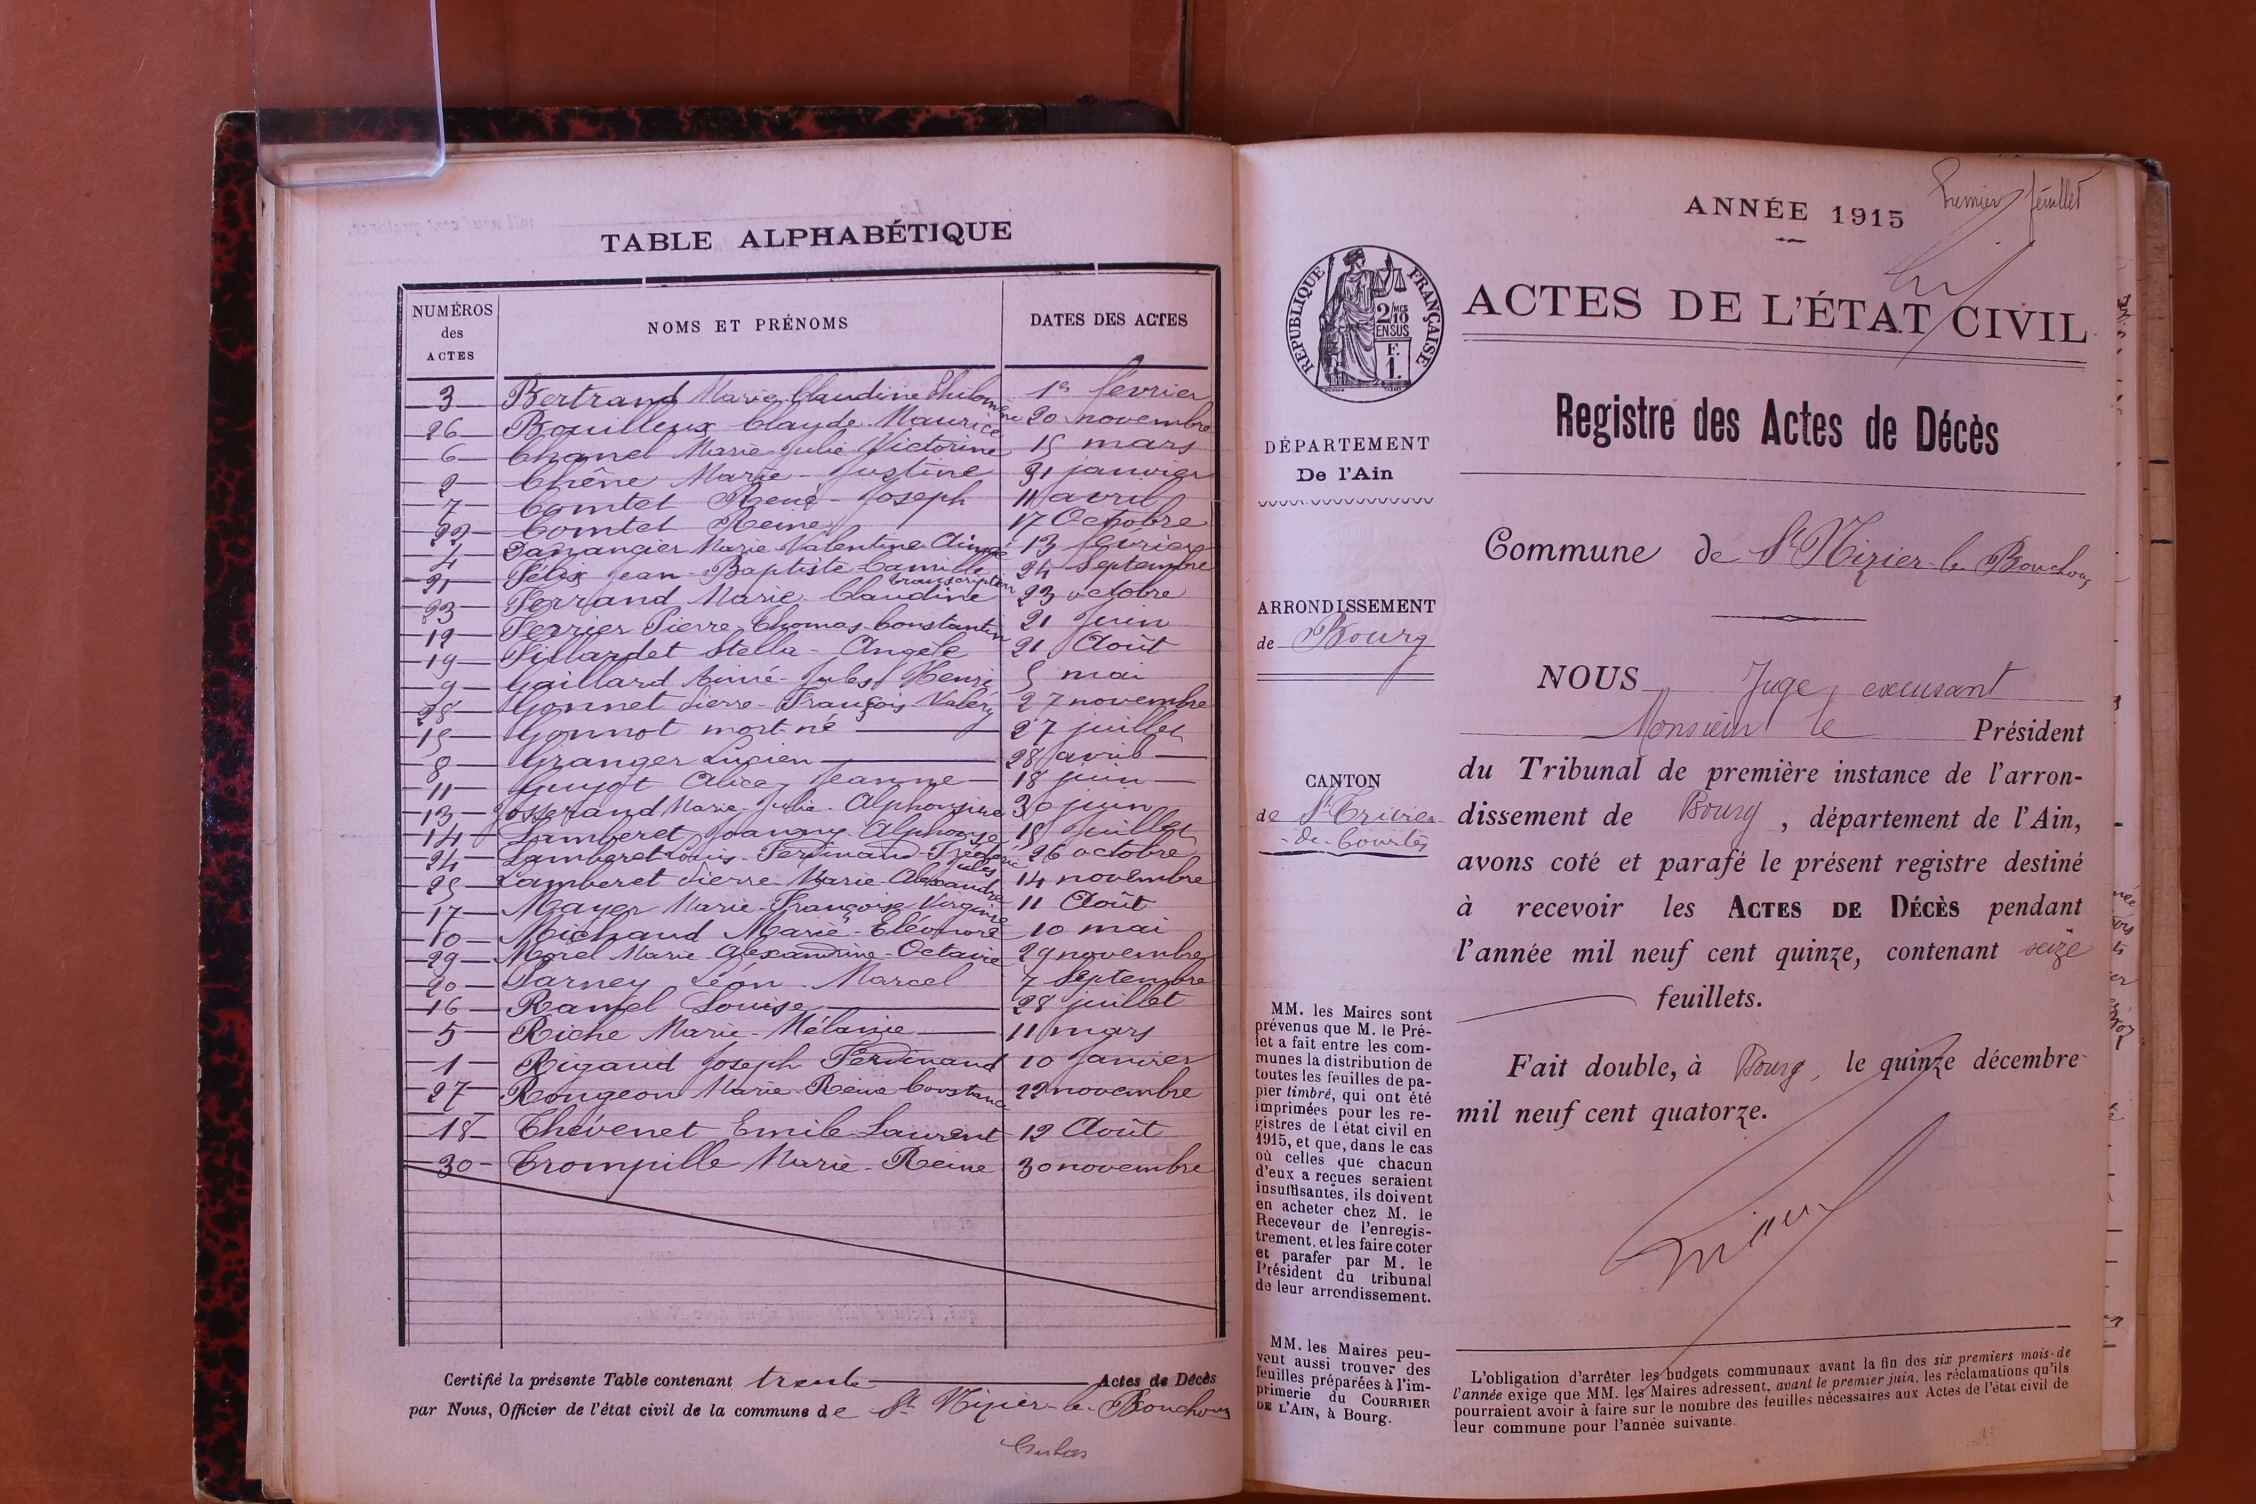 TABLE ALPHABÉTIQUE
NUMÉROS des ACTES NOMS ET PRÉNOMS DATES DES ACTES
3 Bertrand Marie Claudine Philomène 1er fevrier
26 Bouilleux Claude Maurice 20 novembre
6 Chanel Marie Julie Victorine 15 mars
2 Chêne Marie - Justine 31 janvier
7 Comtet René - Joseph 11 avril
22 Comtet Reine 17 Octobre
4 Marie Valentine Aimée 13 fevrier
21 Félix Jean - Baptiste - Camille 24 Septembre
transcription
23 Ferrand Marie Claudine 23 octobre
12 Ferrier Pierre - Thomas - Constantin 21 Juin
19 Fillardet Stella - Angèle 21 Août
9 Gaillard Aimé - Jules Henri 5 mai
28 Gonnet Pierre - François Valéry 27 novembre
15 Gonnot mort-né 27 juillet
8 Granger Lucien 28 avril
11 Guyot Alice Jeanne 18 juin
13 Josserand Marie - Julie - Alphonsine 30 juin
14 Lamberet Joanny Alphonse 18 Juillet
24 Lamberet Louis - Ferdinand - Frédéric 26 octobre
Jules
25 Lamberet Pierre Marie Alexandre 14 novembre
17 Mayer Marie - Françoise Virginie 11 Août
10 Michaud Marie - Eléonore 10 mai
29 Morel Marie Alexandrine - Octavie 29 novembre
20 Parney Léon - Marcel 7 Septembre
16 Ramel Louise 28 juillet
5 Riche Marie - Mélanie 11 mars
1 Rigaud Joseph Ferdinand 10 Janvier
27 Rongeon Marie - Reine Constance 22 novembre
18 Thévenet Emile Laurent 12 Août
30 Trompille Marie - Reine 30 novembre
Certifié la présente Table contenant trente Actes de Décès
par Nous, Officier de l'état civil de la commune de St Nizier-le-Bouchoux
Premier feuillet
ANNÉE 1915
RÉPUBLIQUE FRANÇAISE
2/10 MES
EN SUS
F.
1.
ACTES DE L'ÉTAT CIVIL
Registre des Actes de Décès
DÉPARTEMENT
De l'Ain
Commune de St Nizier-le Bouchoux
ARRONDISSEMENT
de Bourg
NOUS Juge, excusant
Monsieur le Président
du Tribunal de première instance de l'arron-
dissement de Bourg, département de l'Ain,
avons coté et parafé le présent registre destiné
à recevoir les ACTES DE DÉCÈS pendant
l'année mil neuf cent quinze, contenant seize
feuillets.
CANTON
de St Trivier
-de-Courtes
Fait double, à Bourg, le quinze décembre
mil neuf cent quatorze.
MM. les Maires sont
prévenus que M. le Pré-
fet a fait entre les com-
munes la distribution de
toutes les feuilles de pa-
pier timbré, qui ont été
imprimées pour les re-
gistres de l'état civil en
1915, et que, dans le cas
où celles que chacun
d'eux a reçues seraient
insuffisantes, ils doivent
en acheter chez M. le
Receveur de l'enregis-
trement, et les faire coter
et parafer par M. le
Président du tribunal
de leur arrondissement.
MM. les Maires peu-
vent aussi trouver des
feuilles préparées à l'im-
primerie du COURRIER
DE L'AIN, à Bourg.
L'obligation d'arrêter les budgets communaux avant la fin des six premiers mois de
l'année exige que MM. les Maires adressent, avant le premier juin, les réclamations qu'ils
pourraient avoir à faire sur le nombre des feuilles nécessaires aux Actes de l'état civil de
leur commune pour l'année suivante.